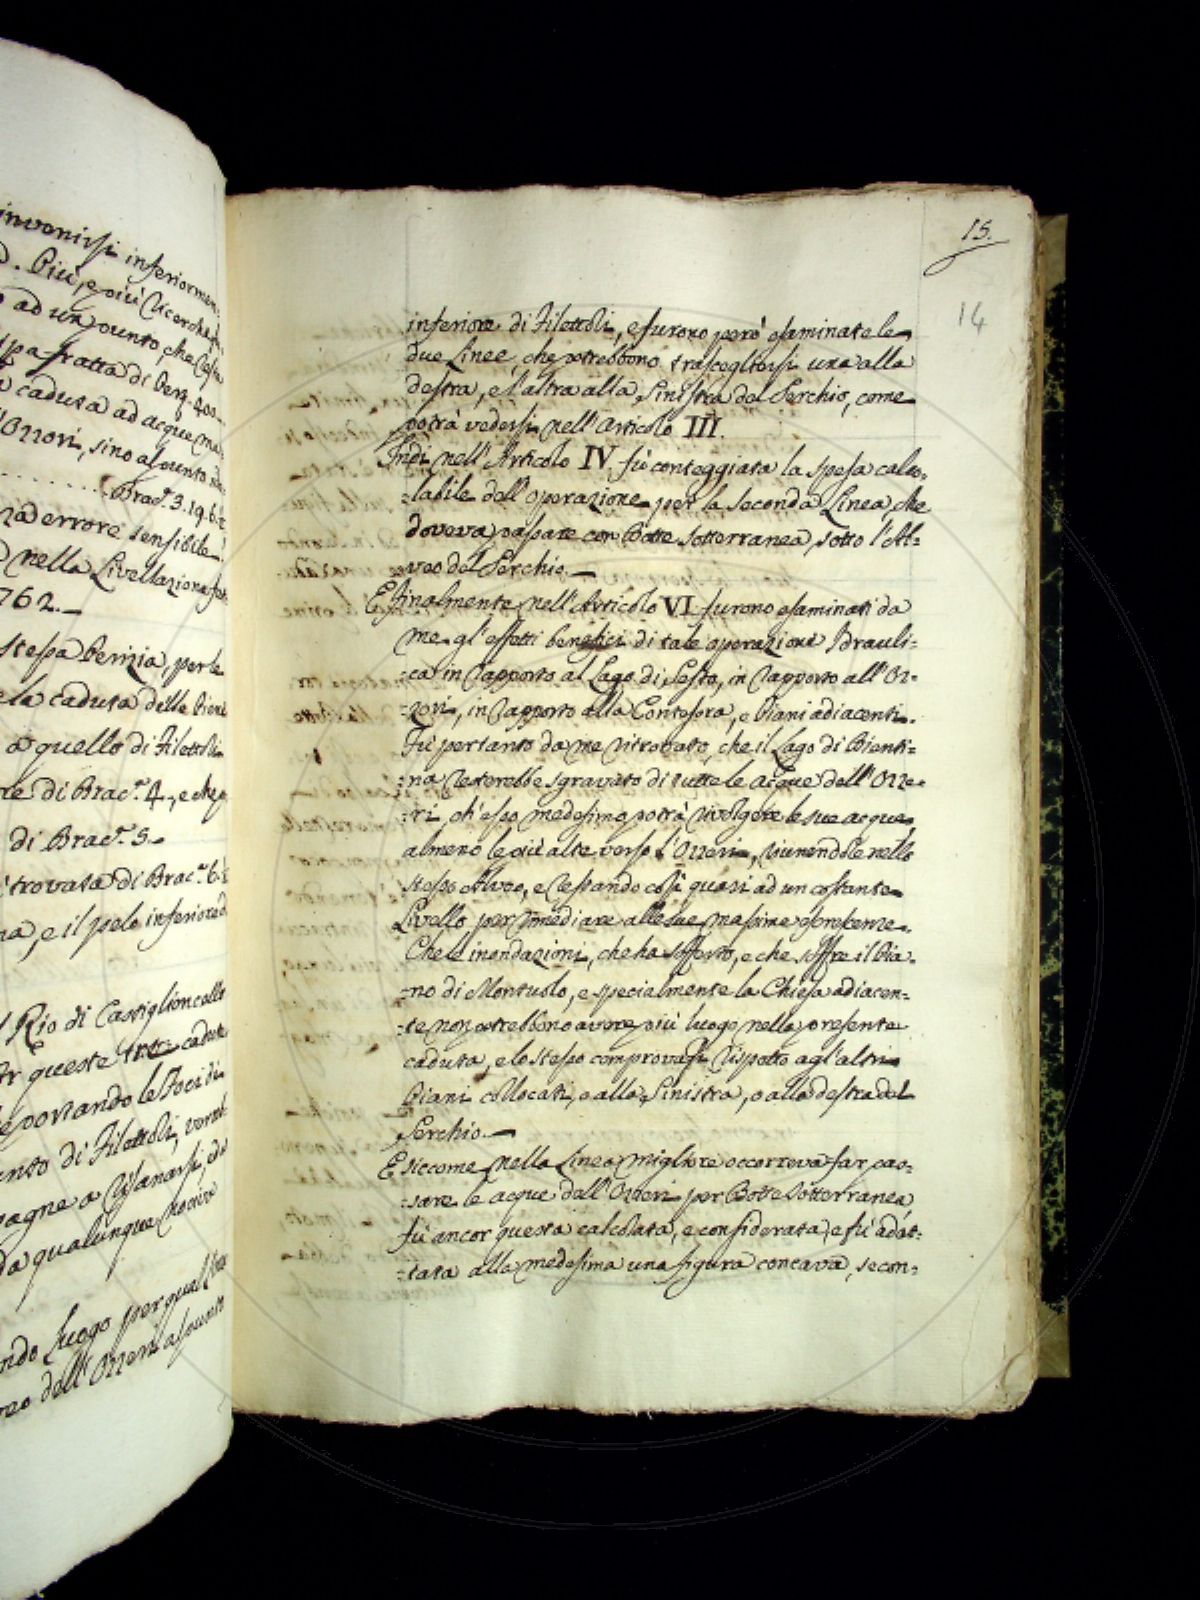 invenirsi inferiormen:
Più, e più ricerche
ad un punto, che resta
fratta di Perq. 400
caduta ad acque ma:
Ozzori, sino al punto
Brac.ª 3. 19. 6.
errore sensibile
nella Livellazione
762.
stessa perizia, per la
la caduta delle
a quello di Filettoli
di Brac.ª 4., e che
di Brac.ª 5.
trovata di Brac.ª 6
e il pelo inferiore
Rio di Castiglioncello
queste tre cadute
portando le Foci di
di Filettoli, verrà
a risanarsi, ed
da qualunque nocive
Luogo per quel
dell'Ozzeri al punto
15.
14
inferiore di Filettoli, e furono però esaminate le
due Linee, che potrebbono trascegliersi una alla
destra, e l'altra alla Sinistra del Serchio, come
potrà vedersi nell'Articolo III.
Indi nell'Articolo IV. fù conteggiata la spesa calco:
:labile dell'operazione per la seconda Linea, che
doveva passare con Botte sotterranea, sotto l'Al:
:veo del Serchio.
E finalmente nell'Articolo VI. furono esaminati da
me gl'effetti benefici di tale operazione Idrauli:
:ca in rapporto al Lago di Sesto, in rapporto all'Oz:
:zori, in rapporto alla Contesora, e Piani adiacenti.
Fù pertanto da me ritrovato, che il Lago di Bienti:
:na resterebbe sgravato di tutte le acque dell'Ozze:
:ri, ch'esso medesimo potrà rivolgere le sue acque
almeno le più alte verso l'Ozzeri, riunendole nello
stesso Alveo, e restando così quasi ad un costante
Livello per rimediare alle sue massime escrescenze.
Che le inondazioni, che ha sofferto, e che soffre il Pia:
:no di Montuolo, e specialmente la Chiesa adiacen:
:te non potrebbono avere più luogo nella presente
caduta, e lo stesso comprovasi rispetto agl'altri
Piani collocati, o alla Sinistra, o alla destra del
Serchio.
E siccome nella Linea migliore occorreva far pas:
:sare le acque dell'Ozzeri per Botte sotterranea,
fù ancor questa calcolata, e considerata, e fù adat:
:tata alla medesima una figura concava, secon: